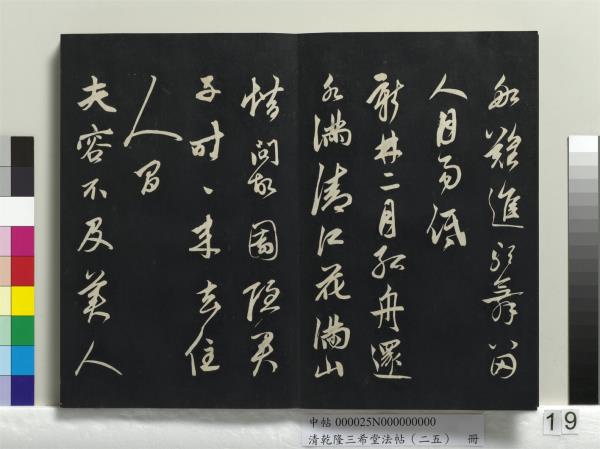 船難進歌舞留
人月易低
新林二月孤舟還
水滿清江花滿山
借問故園隱君
子時時來去住
人間
夫容不及美人
中帖 000025N000000000
清乾隆三希堂法帖（二五） 冊
19